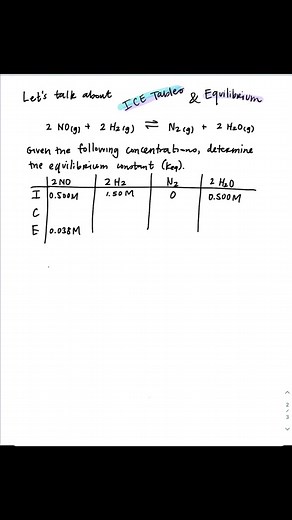 Let's talk about ICE Tables & Equilibrium
2 NO(g) + 2 H2(g) ⇌ N2(g) + 2 H2O(g)
Given the following concentrations, determine
the equilibrium constant (Keq).
2 NO 2 H2 N2 2 H2O
I 0.500M 1.50 M 0 0.500M
C
E 0.038M
2
3